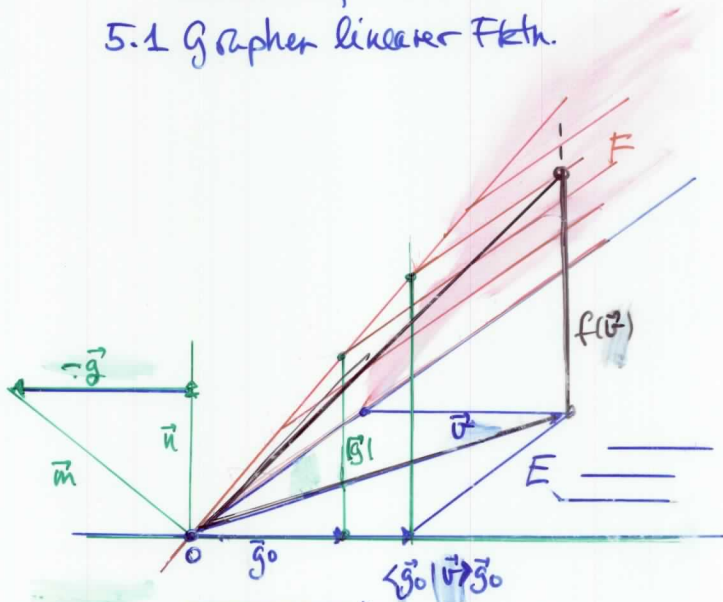 5.1 Graphen linearer Fktn.
F
f(v⃗)
-g⃗
n⃗
m⃗
|g⃗|
v⃗
E
O
g⃗₀
<g⃗₀|v⃗>g⃗₀